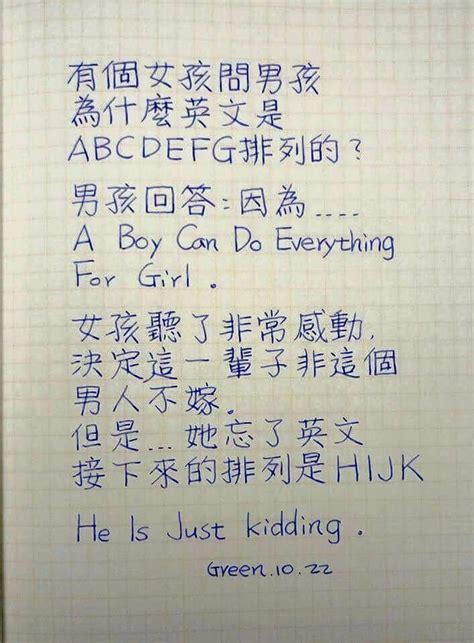 有個女孩問男孩
為什麼英文是
ABCDEFG排列的?
男孩回答:因為....
A Boy Can Do Everything
For Girl.
女孩聽了非常感動,
決定這一輩子非這個
男人不嫁。
但是...她忘了英文
接下來的排列是HIJK
He Is Just kidding.
Green.10.22